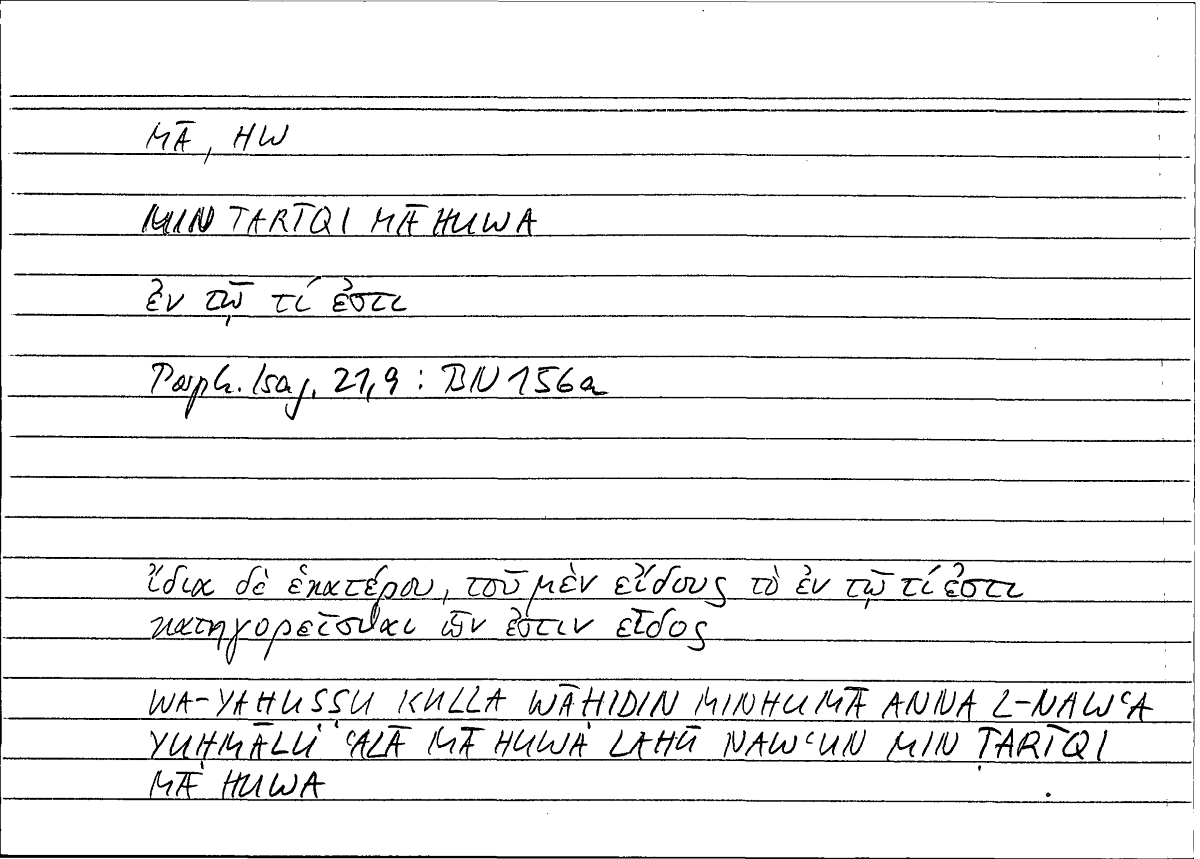 MĀ, HW
MIN TARĪQI MĀ HUWA
ἐν τῷ τί ἐστι
Porph. Isag. 21,9 : BN 156a
ἴδια δὲ ἑκατέρου, τοῦ μὲν εἴδους τὸ ἐν τῷ τί ἐστι
κατηγορεῖσθαι ὧν ἐστιν εἶδος
WA-YAHUṢṢU KULLA WĀḤIDIN MINHUMĀ ANNA L-NAWʿA
YUḤMĀLU ʿALĀ MĀ HUWA LAHŪ NAWʿUN MIN ṬARĪQI
MĀ HUWA